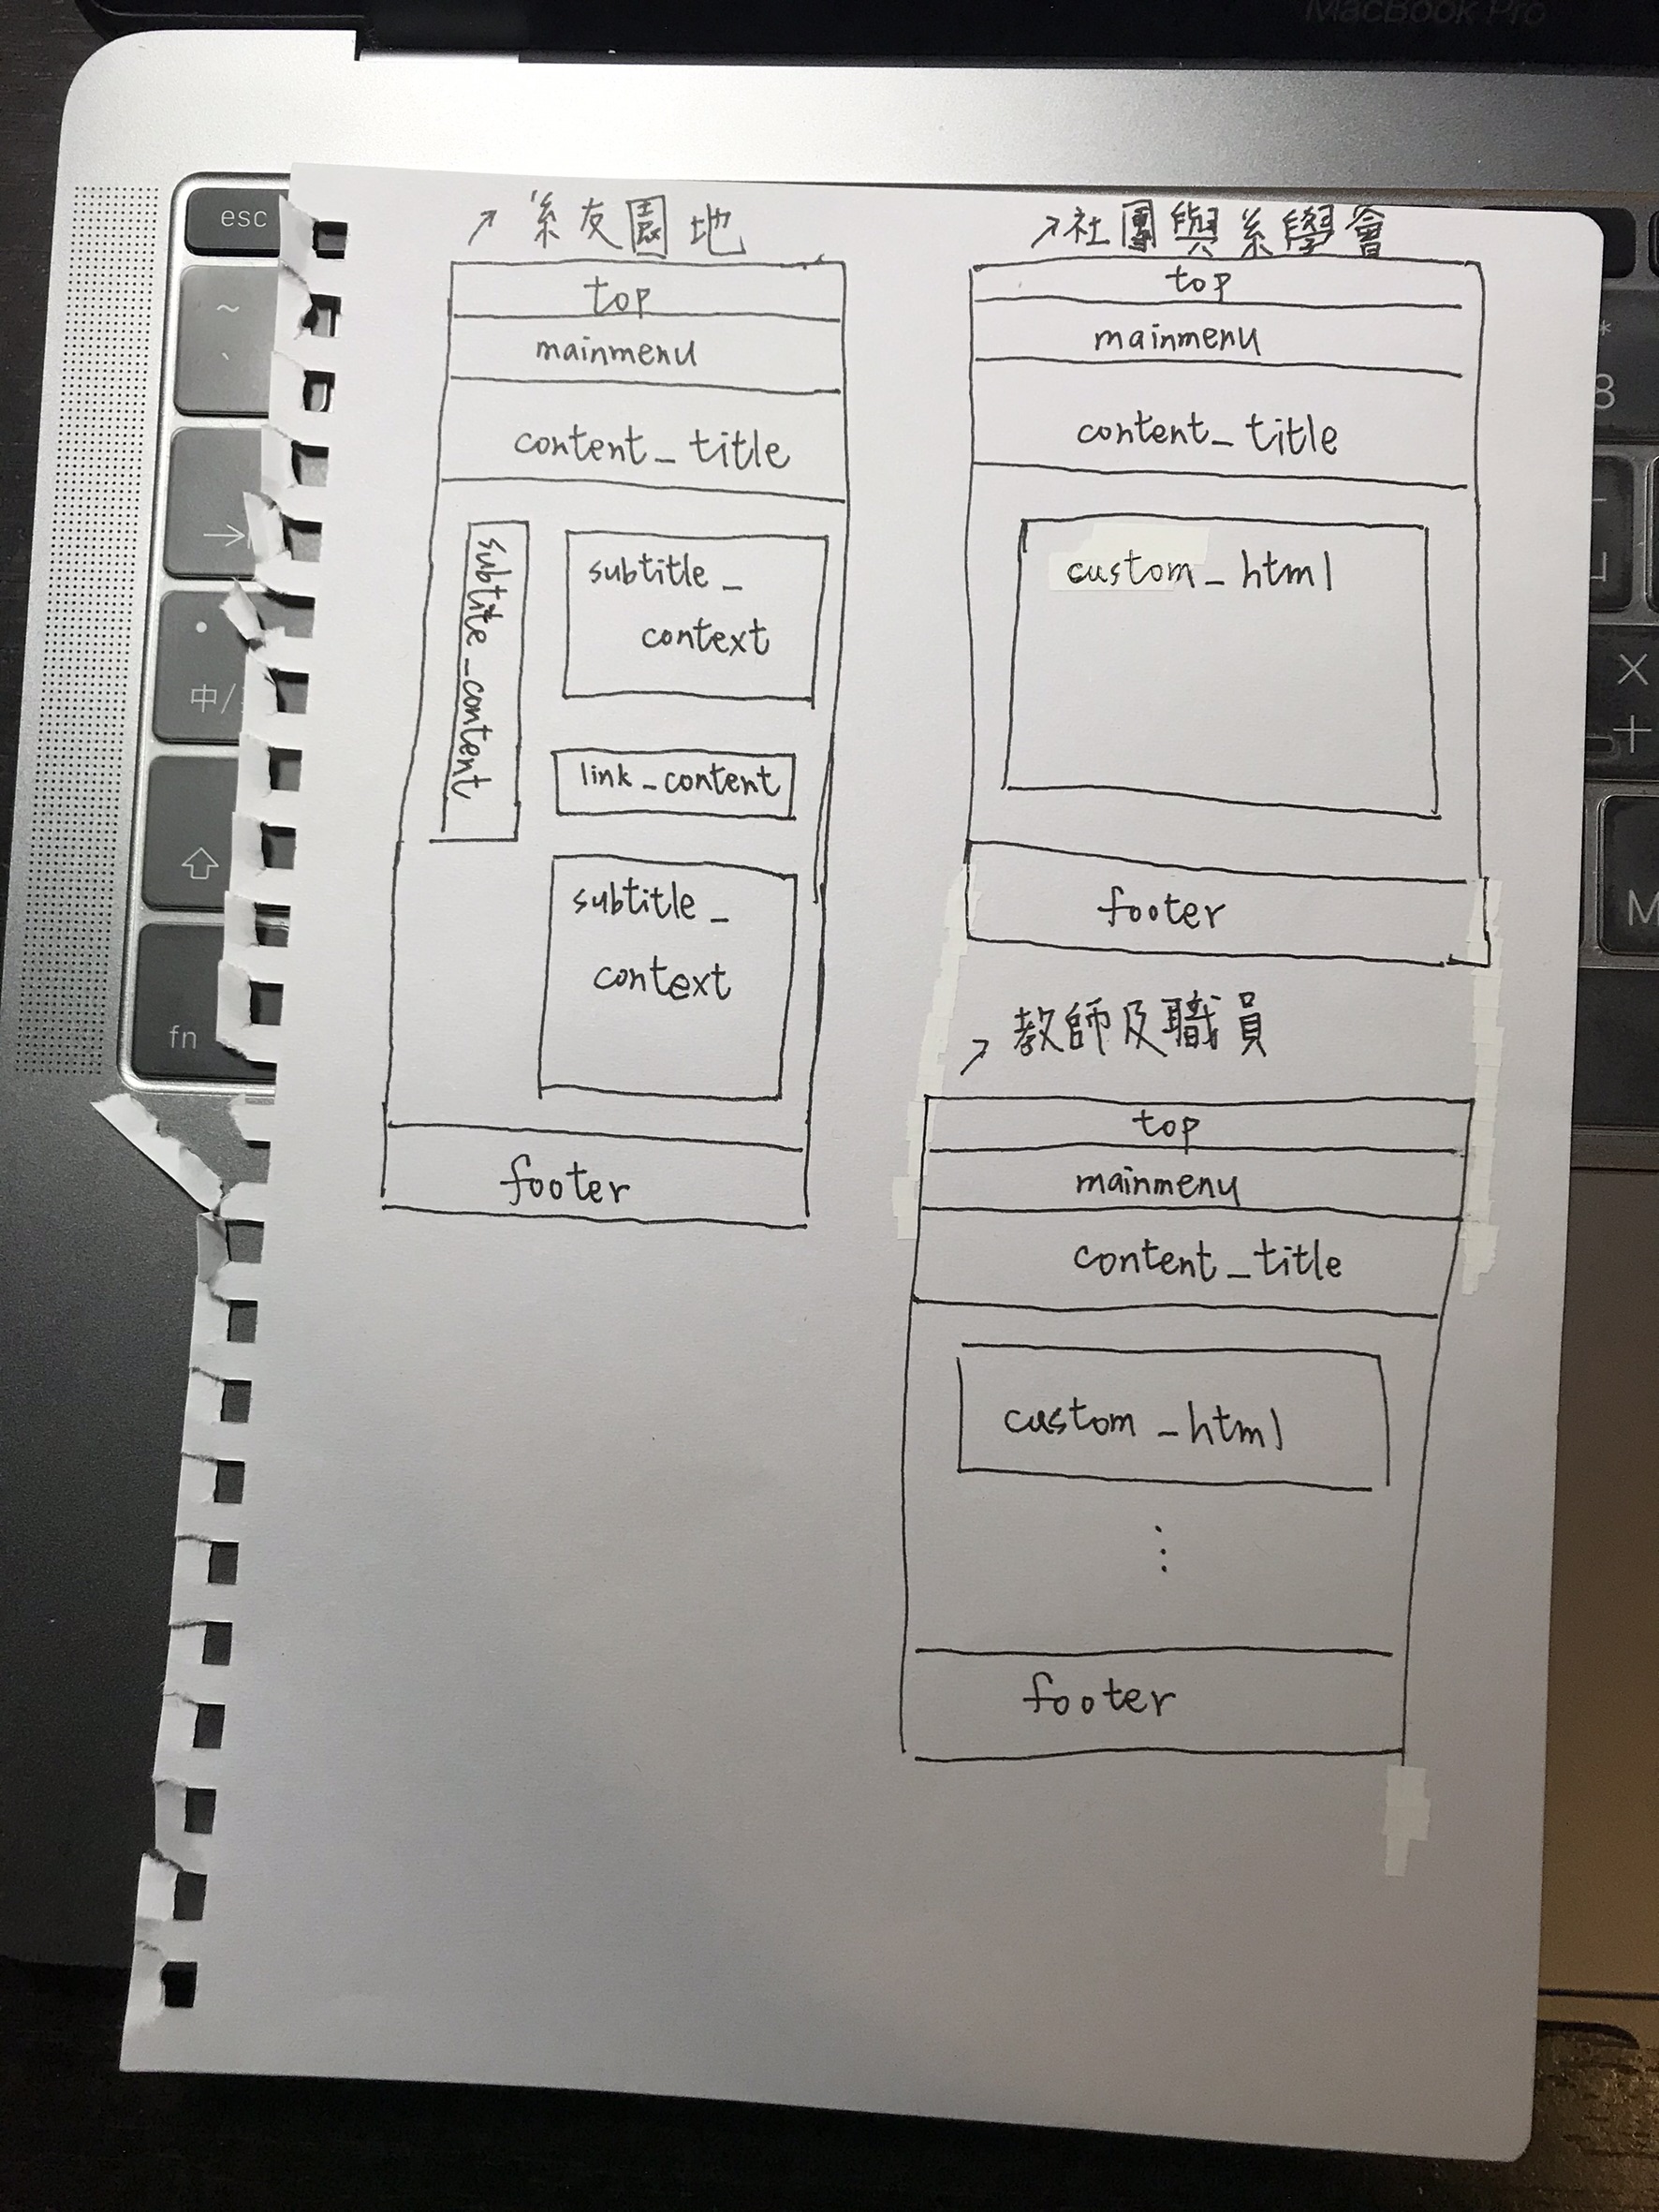 MacBook Pro
esc
~
`
→
中/
fn
系友園地
top
mainmenu
content_title
subtitle_content
subtitle_
context
link_content
subtitle_
context
footer
社團與系學會
top
mainmenu
content_title
custom_html
footer
教師及職員
top
mainmenu
content_title
custom_html
⋮
footer
*
8
X
+
M